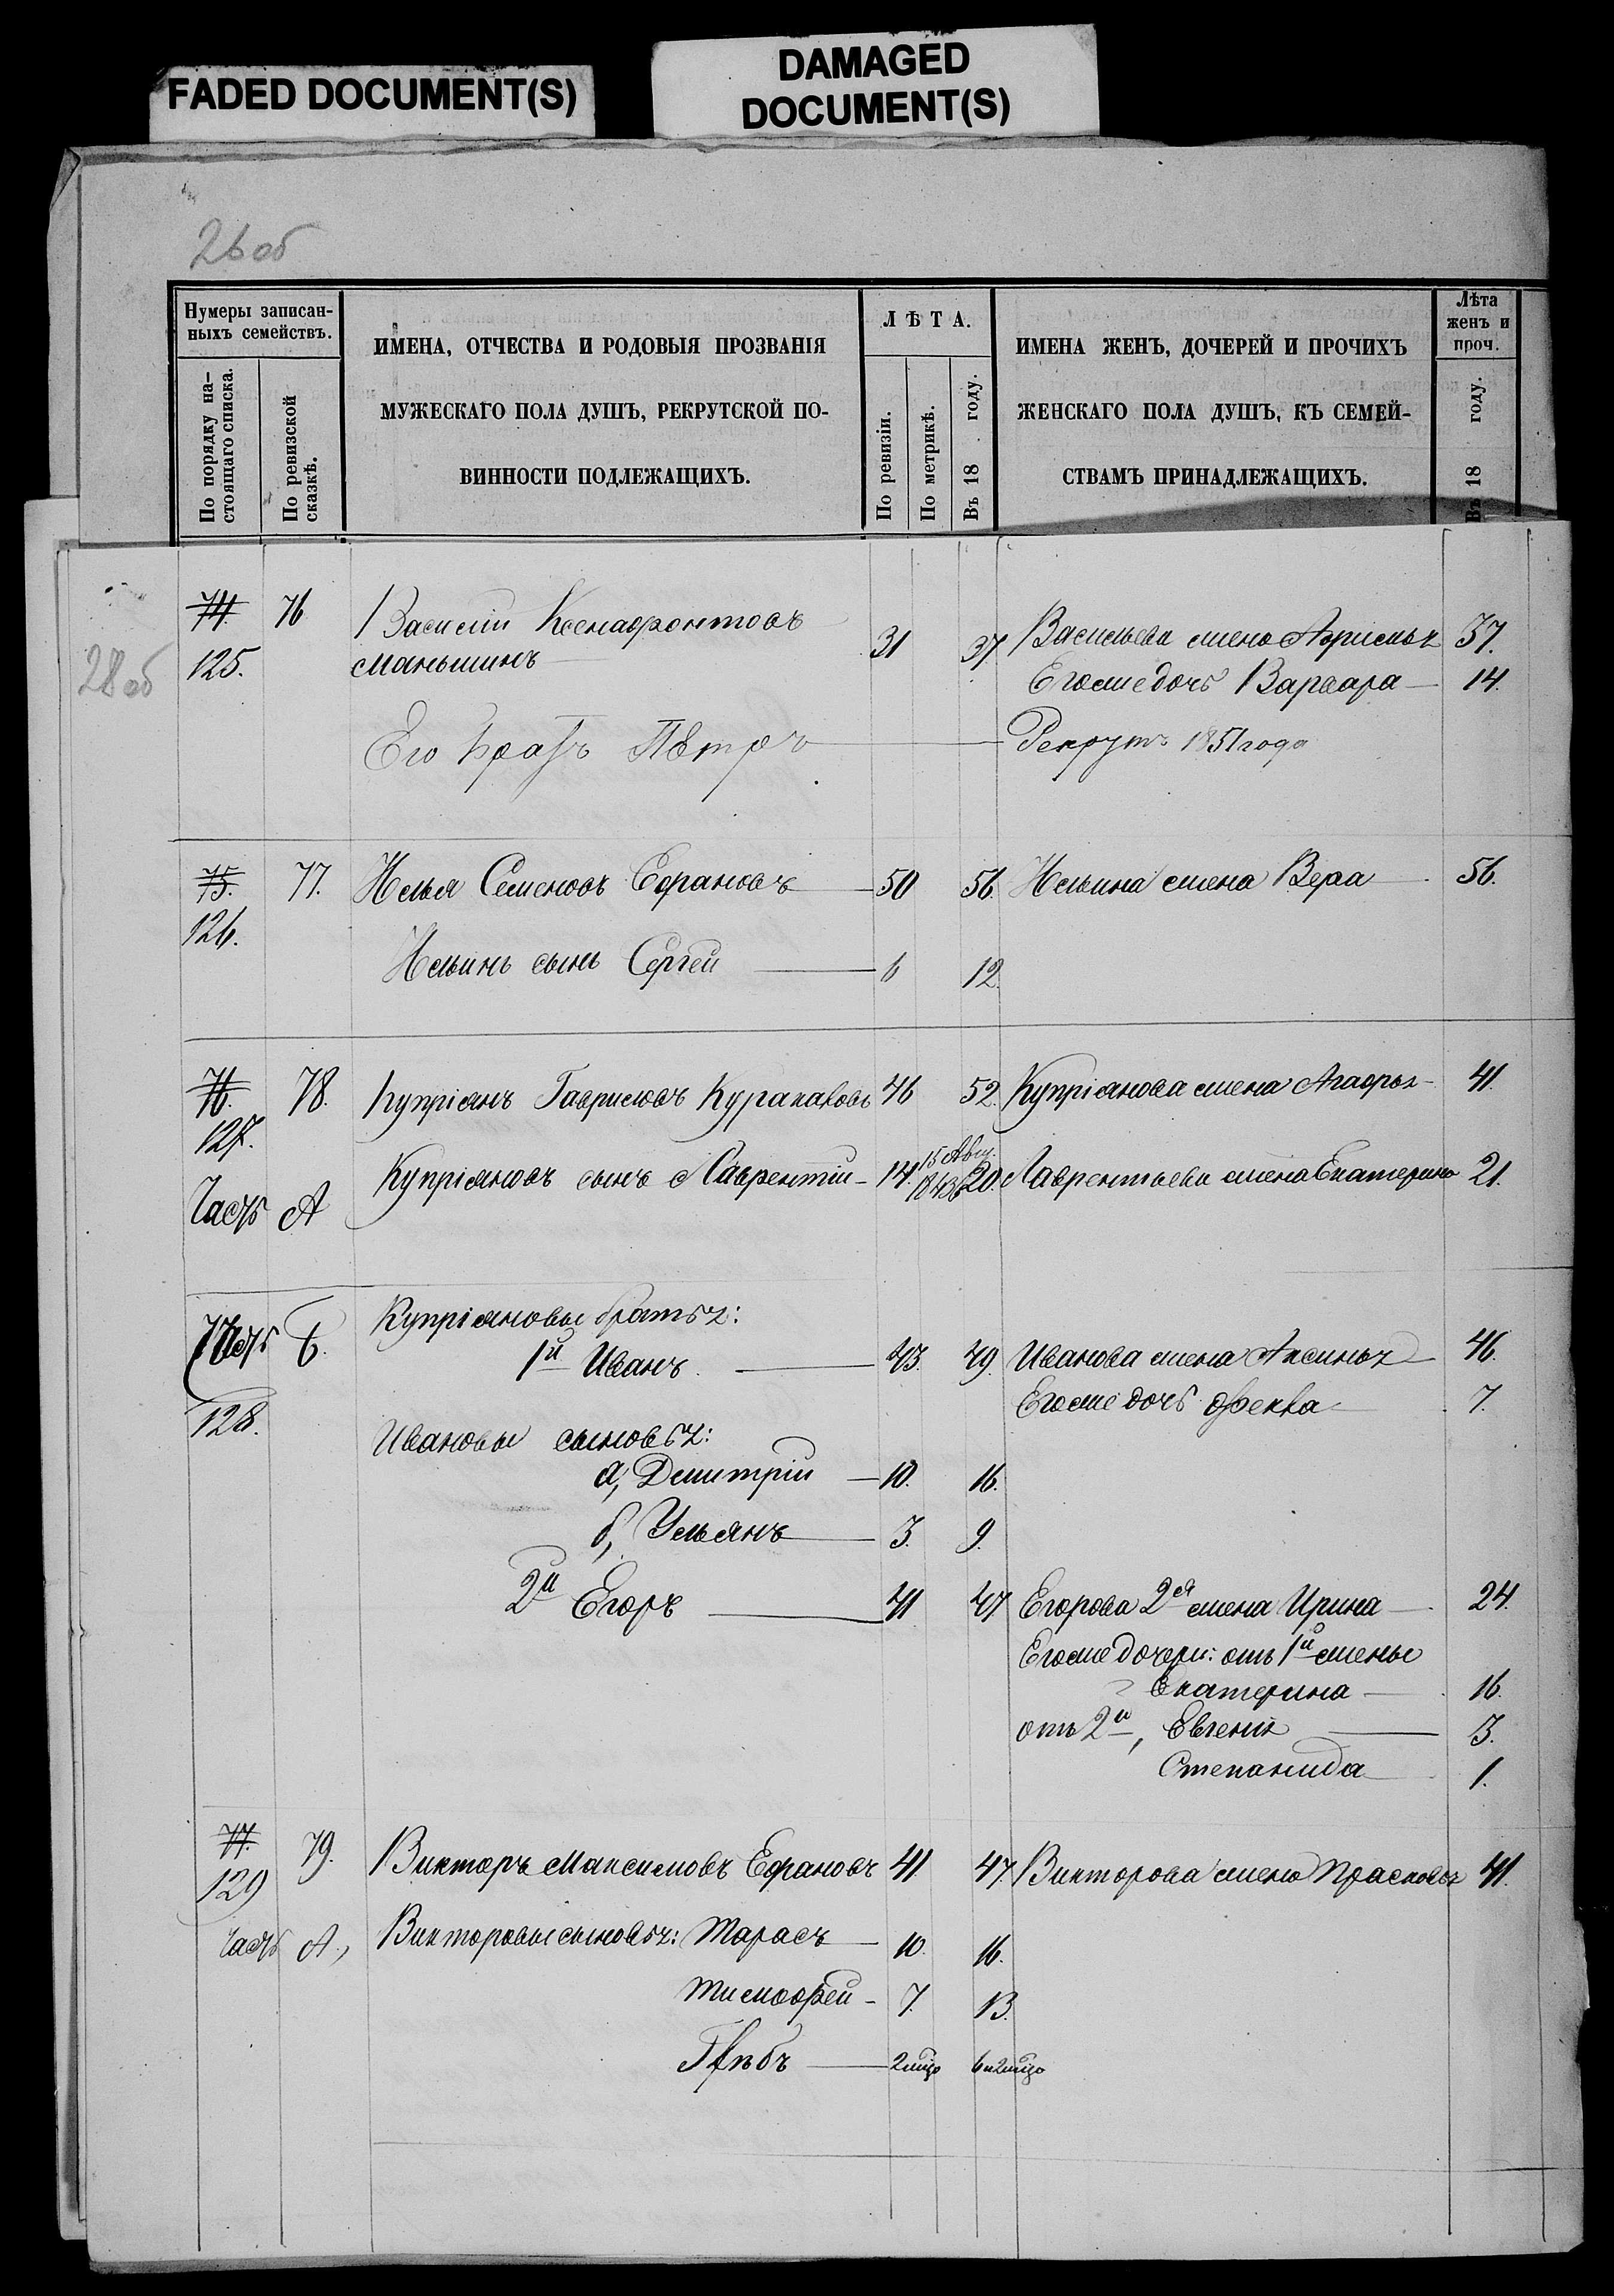 FADED DOCUMENT(S)
DAMAGED
DOCUMENT(S)
26 об
Нумеры записан-
ныхъ семействъ.
По порядку на-
стоящаго списка.
По ревизской
сказкѣ.
ИМЕНА, ОТЧЕСТВА И РОДОВЫЯ ПРОЗВАНІЯ
МУЖЕСКАГО ПОЛА ДУШЪ, РЕКРУТСКОЙ ПО-
ВИННОСТИ ПОДЛЕЖАЩИХЪ.
ЛѢТА.
По ревизіи.
По метрикѣ.
Въ 18 году.
ИМЕНА ЖЕНЪ, ДОЧЕРЕЙ И ПРОЧИХЪ
ЖЕНСКАГО ПОЛА ДУШЪ, КЪ СЕМЕЙ-
СТВАМЪ ПРИНАДЛЕЖАЩИХЪ.
Лѣта
женъ и
проч.
Въ 18 году.
28 об
74. 76 Василій Ксенафонтовъ 31 37 Васильева жена 37.
125. Маньшинъ Егоже дочь Варвара 14.
Его братъ Пётръ Рекрутъ 1851 года
75. 77. Илья Семеновъ Ефановъ 50 56. Ильина жена Вера 56.
126.
Ильинъ сынъ Сергей 6 12.
76. 78. Купріянъ Гавриловъ Куракаковъ 46 52. Купріянова жена Агафья 41.
127.
Купріяновъ сынъ Лаврентій 14. 15 Авг. 1843 20. Лаврентьева жена Екатерина 21.
Часть А
Часть Б. Купріяновы братья:
1й Иванъ 43. 49. Иванова жена Аксинья 46.
Егоже дочь Фекла 7.
128.
Ивановы сыновья:
а, Дмитрій 10. 16.
б, Ульянъ 3. 9.
2й Егоръ 41 47 Егорова 2я жена Ирина 24.
Егоже дочери: отъ 1й жены
Екатерина 16.
отъ 2й, Евгенія 3.
Степанида 1.
77. 79. Викторъ Максимовъ Ефановъ 41 47. Викторова жена Прасковья 41.
129
Часть А, Викторовы сыновья: Тарасъ 10. 16.
Тимофей 7. 13.
Глѣбъ 2 нед 6 и 2 нед